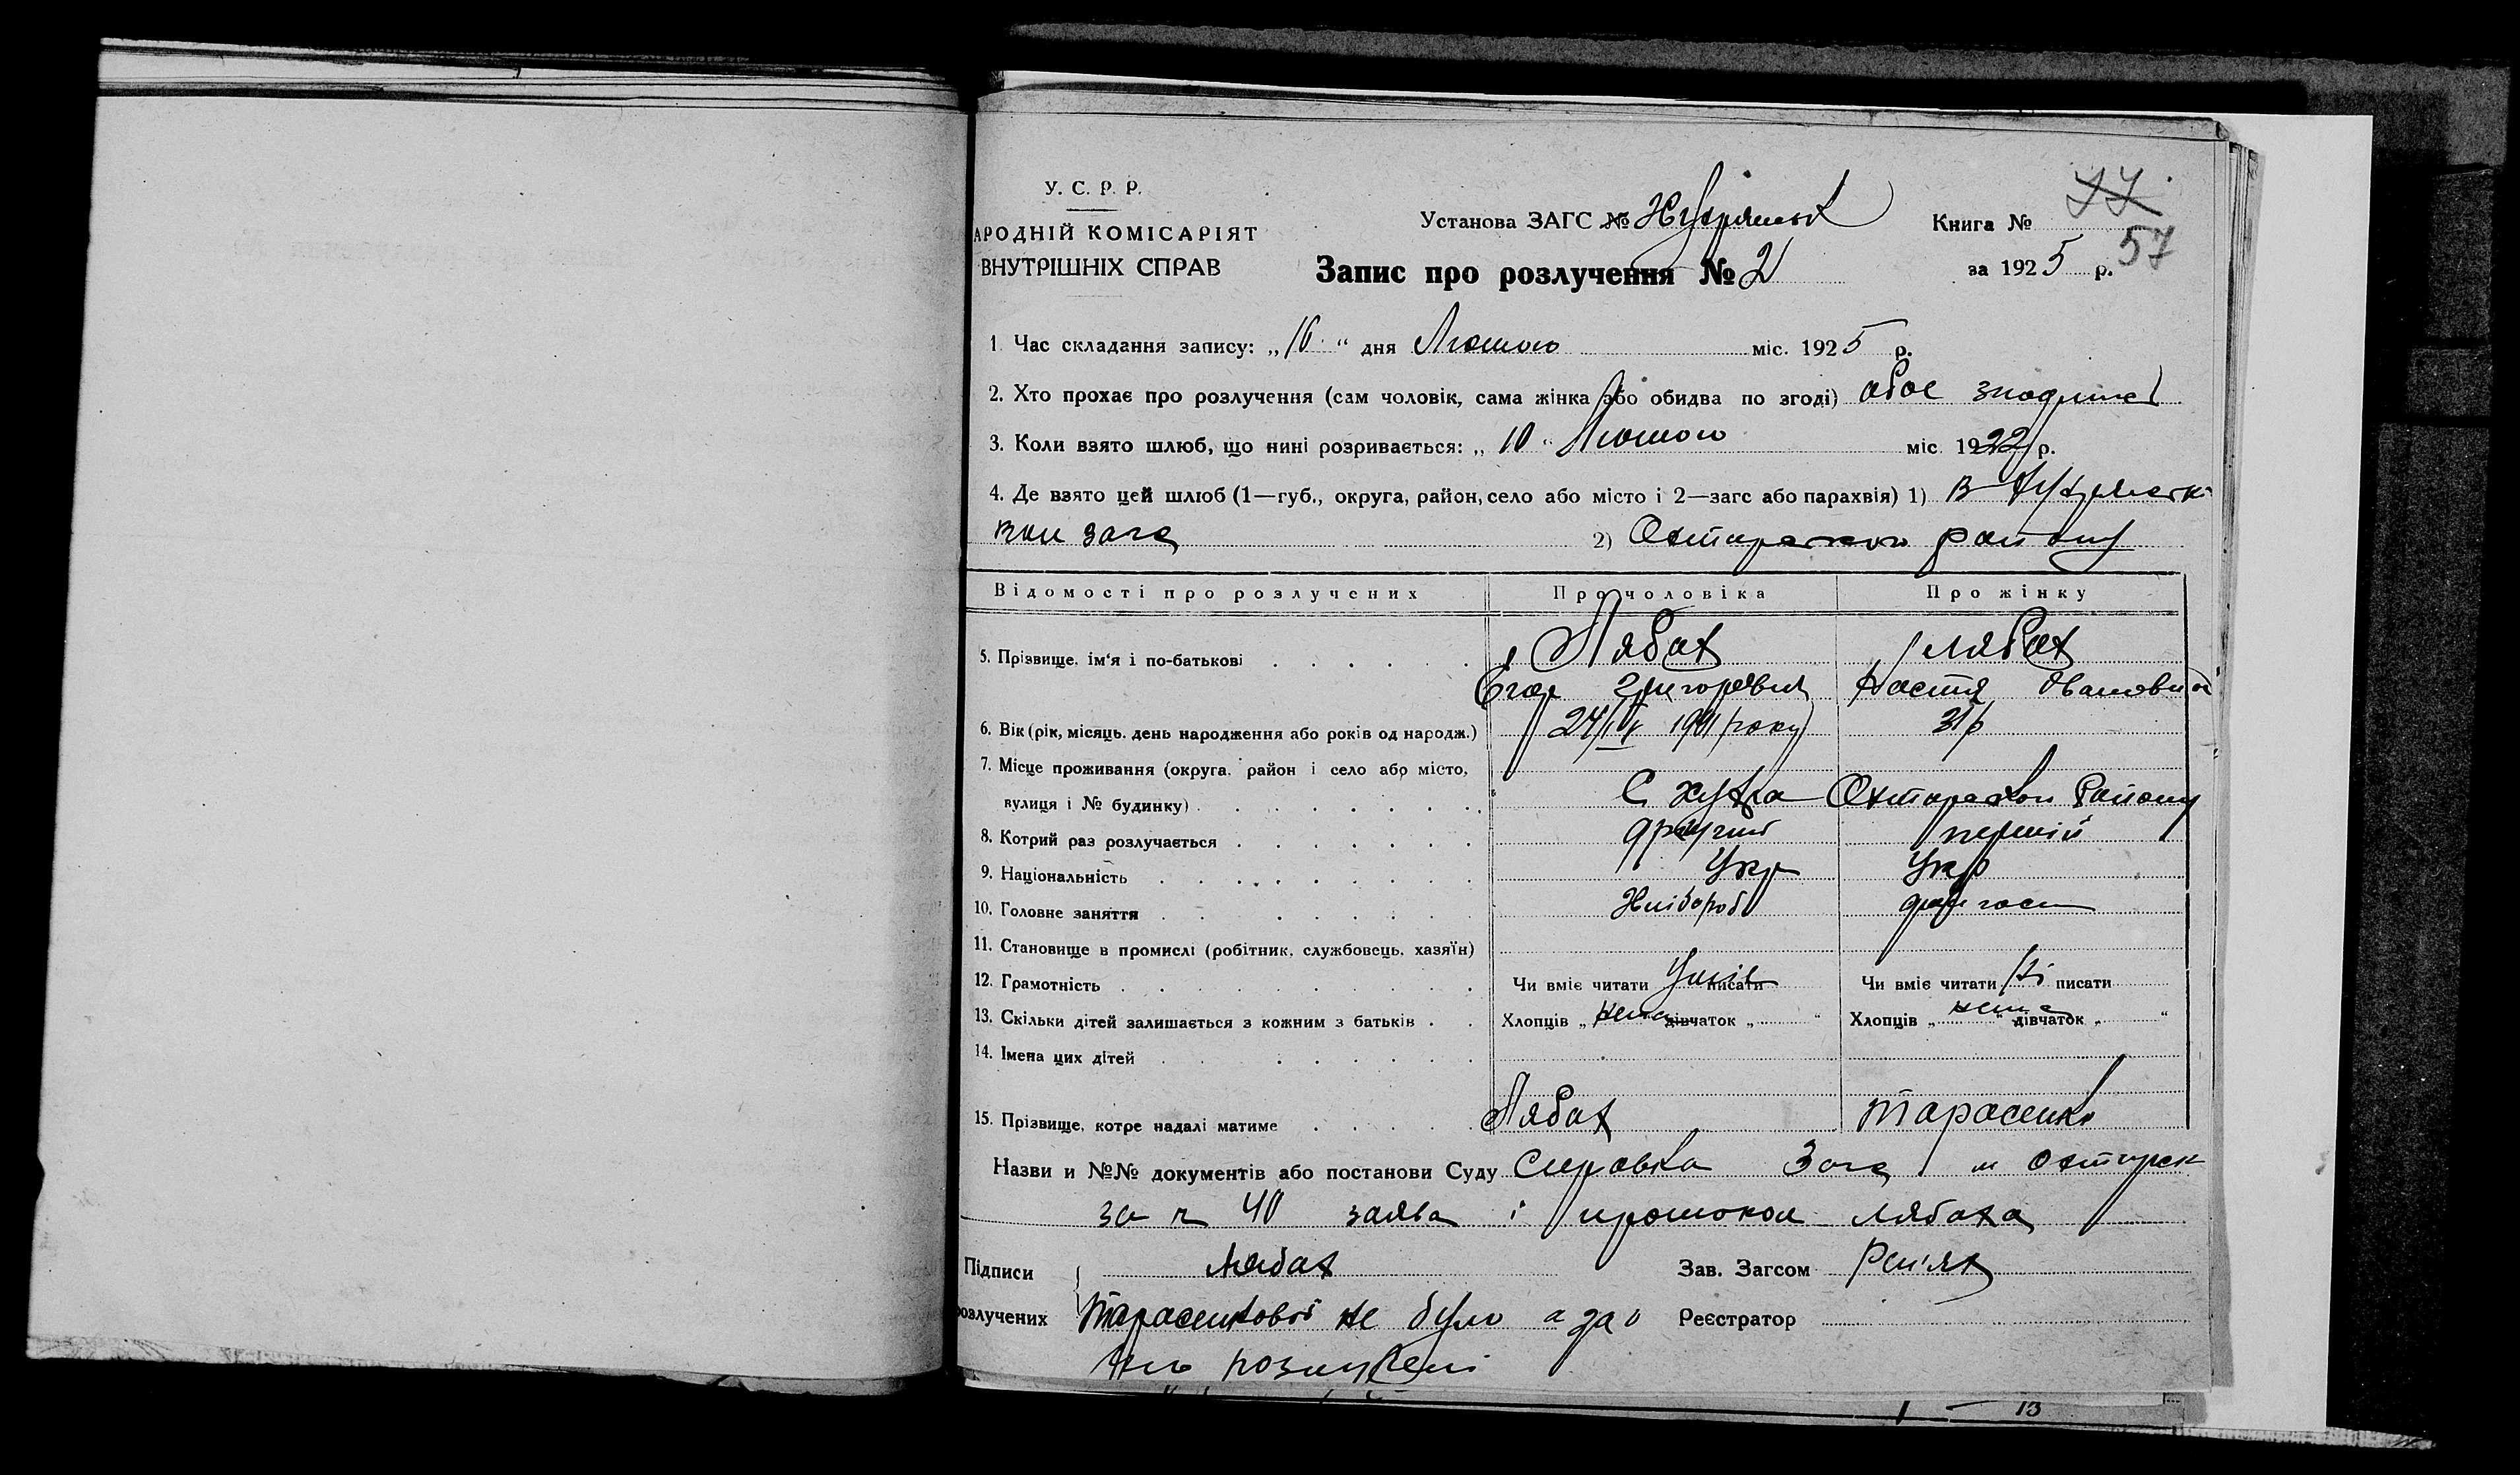 У. С. Р. Р.
АРОДНІЙ КОМІСАРІЯТ
ВНУТРІШНІХ СПРАВ
Установа ЗАГС №
Книга № 77
57
за 1925 р.
Запис про розлучення № 2
1. Час складання запису: „16“ дня Лютого міс. 1925 р.
2. Хто прохає про розлучення (сам чоловік, сама жінка або обидва по згоді) обоє
3. Коли взято шлюб, що нині розривається: „10“ Лютого міс. 1922 р.
4. Де взято цей шлюб (1—губ., округа, район, село або місто і 2—загс або парахвія) 1) в
загс 2) району
Відомості про розлучених Про чоловіка Про жінку
5. Прізвище, ім'я і по-батькові Лябах Лябах
Егор Григоревич Настя
6. Вік (рік, місяць, день народження або років од народж.) 24/IV 1901 року 31 р
7. Місце проживання (округа, район і село або місто,
вулиця і № будинку) С Хухра Району
8. Котрий раз розлучається другий перший
9. Національність Укр Укр
10. Головне заняття Хлібороб
11. Становище в промислі (робітник, службовець, хазяїн)
12. Грамотність Чи вміє читати писати Чи вміє читати Ні писати
13. Скільки дітей залишається з кожним з батьків Хлопців „ нема дівчаток „ “ Хлопців „ нема “ дівчаток „ “
14. Імена цих дітей
15. Прізвище, котре надалі матиме Лябах Тарасенко
Назви и №№ документів або постанови Суду Справка Загс м
за № 40 заява і протокол Лябаха
Підписи Лябах Зав. Загсом Реп'ях
озлучених Тарасенкової не було Реєстратор
13